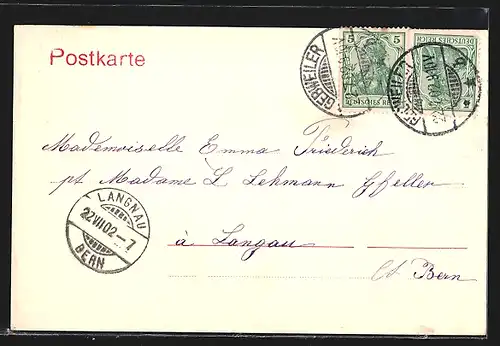 Postkarte
5
5
DEUTSCHES REICH
DEUTSCHES REICH
GEBWEILER
GEBWEILER
Mademoiselle Emma Friederich
pt Madame L Lehmann Gfeller
LANGNAU
22 VII 02-7
BERN
à Langau
Ct Bern